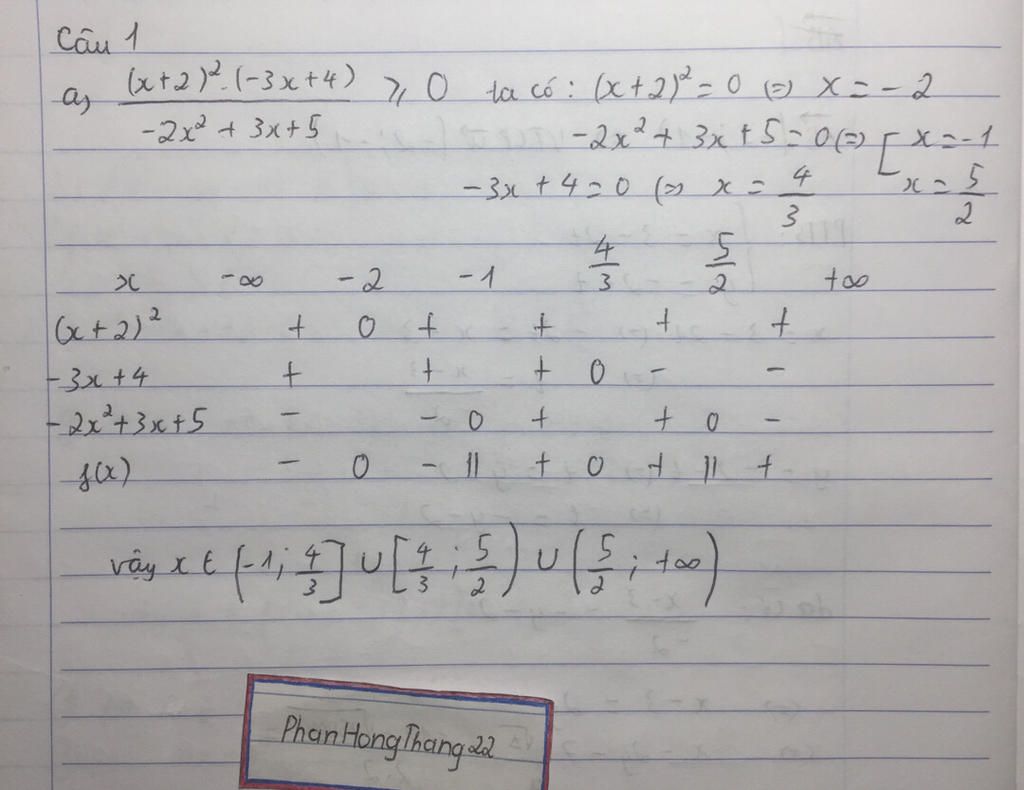 Câu 1
a, (x+2)².(-3x+4) / -2x²+3x+5 ⩾ 0 ta có: (x+2)²=0 (=) x=-2
-2x²+3x+5=0 (=) [ x=-1
-3x+4=0 (=) x=4/3 x=5/2
x -∞ -2 -1 4/3 5/2 +∞
(x+2)² + 0 + + + +
-3x+4 + + + 0 - -
-2x²+3x+5 - - 0 + + 0 -
f(x) - 0 - || + 0 + || +
vậy x ∈ (-1; 4/3] ∪ [4/3; 5/2) ∪ (5/2; +∞)
PhanHongThang22